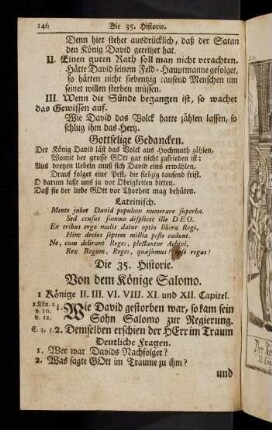 146 Die 35. Historie.
Denn hier stehet ausdrücklich, daß der Satan
den König David gereitzet hat.
II. Einen guten Rath soll man nicht verachten.
Hätte David seinem Feld-Hauptmanne gefolget,
so hätten nicht siebentzig tausend Menschen um
seinet willen sterben müssen.
III. Wenn die Sünde begangen ist, so wachet
das Gewissen auf.
Wie David das Volck hatte zählen lassen, so
schlug ihm das Hertz.
Gottselige Gedancken.
Der König David läst das Volck aus Hochmuth zählen,
Womit der grosse GOtt gar nicht zufrieden ist:
Aus dreyen Ubeln muß sich David eins erwählen,
Drauf folget eine Pest, die siebzig tausend frist.
O darum laßt uns ja vor Obrigkeiten bitten,
Daß sie der liebe GOtt vor Thorheit mag behüten.
Lateinisch.
Mente jubet David populum numerare superba.
Sed census summo displicet ille DEO.
En tribus ergo malis datur optio libera Regi,
Hinc decies septem millia peste cadunt.
Ne, cum delirant Reges, plectantur Achivi,
Rex Regum, Reges, quæsumus! ipse regas!
Die 35. Historie.
Von dem Könige Salomo.
1 Könige II. III. VI. VIII. XI. und XII. Capitel.
1 Kön. 2. 1. Wie David gestorben war, so kam sein
v. 10.
v. 12. Sohn Salomo zur Regierung.
C. 3. 5. 2. Demselben erschien der HErr im Traum
Deutliche Fragen.
1. Wer war Davids Nachfolger?
2. Was sagte GOtt im Traume zu ihm?
und